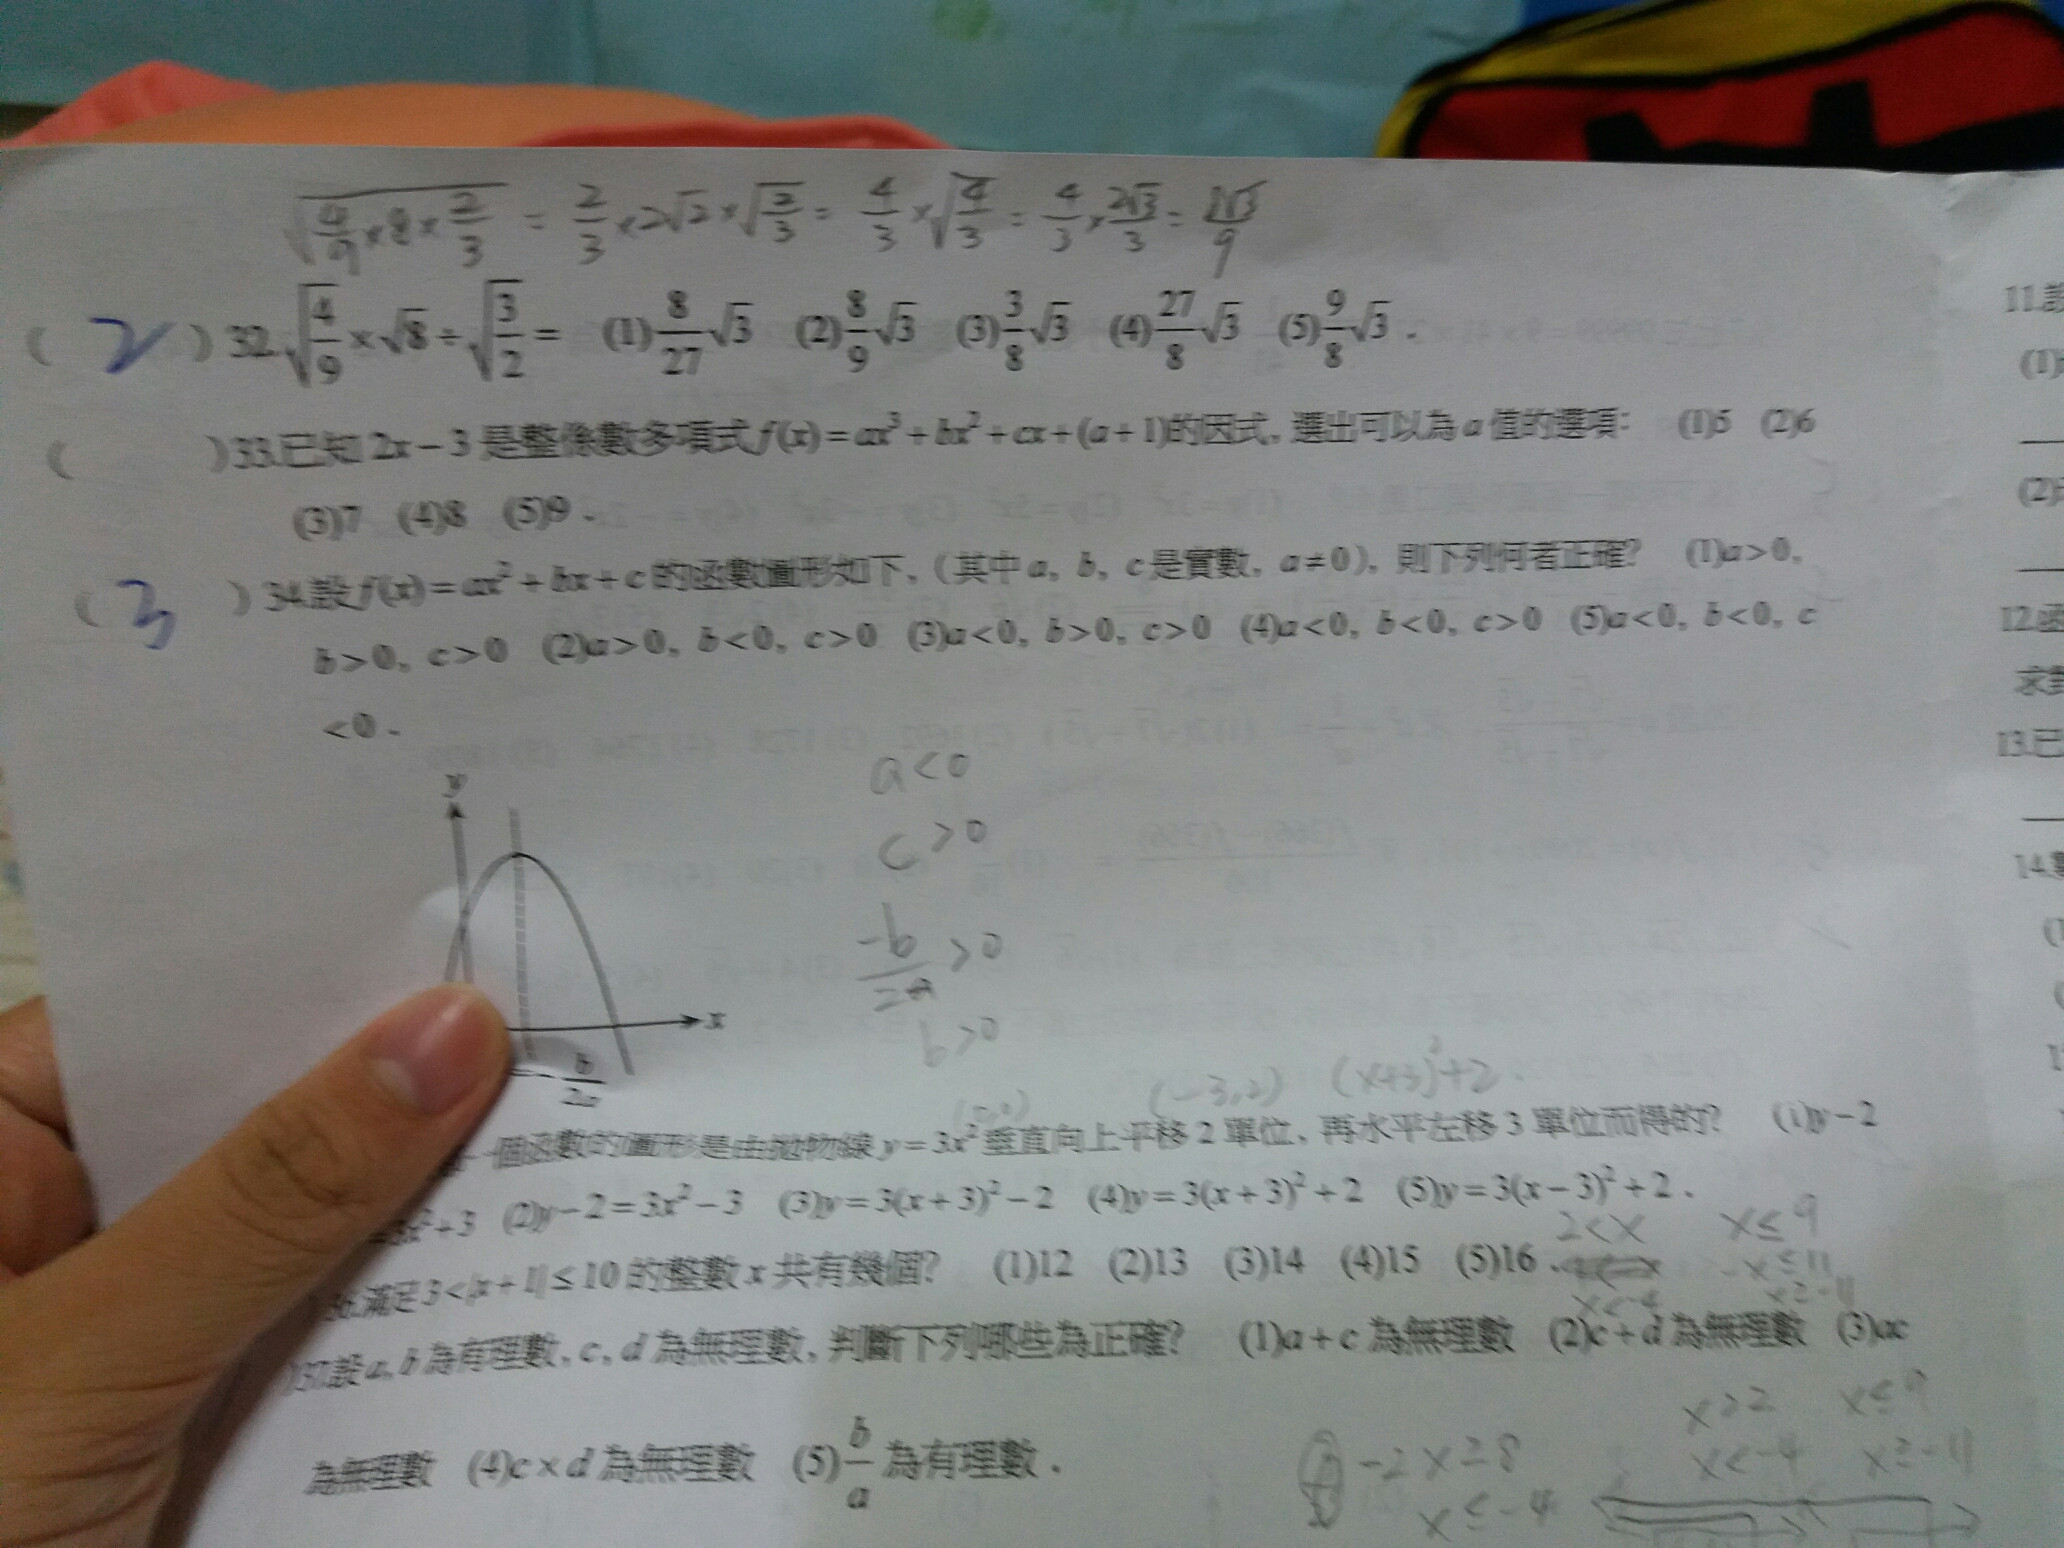 √(4/9×8×2/3) = 2/3×2√2×√(2/3) = 4/3×√(4/3) = 4/3×2√3/3 = 8√3/9
( 2 ) 32.√(4/9)×√8÷√(3/2)= (1)8/27√3 (2)8/9√3 (3)3/8√3 (4)27/8√3 (5)9/8√3.
( )33.已知 2x−3 是整係數多項式 f(x)=ax³+bx²+cx+(a+1)的因式, 選出可以為 a 值的選項: (1)5 (2)6
(3)7 (4)8 (5)9.
( 3 ) 34.設 f(x)=ax²+bx+c 的函數圖形如下, (其中 a, b, c 是實數, a≠0), 則下列何者正確? (1)a>0,
b>0, c>0 (2)a>0, b<0, c>0 (3)a<0, b>0, c>0 (4)a<0, b<0, c>0 (5)a<0, b<0, c
<0.
y
x
b/2a
a<0
c>0
-b/2a >0
b>0
(-3,2) (x+3)²+2.
一個函數的圖形是由拋物線 y=3x² 垂直向上平移 2 單位, 再水平左移 3 單位而得的? (1)y−2
=3x²+3 (2)y−2=3x²−3 (3)y=3(x+3)²−2 (4)y=3(x+3)²+2 (5)y=3(x−3)²+2.
2<x x≤9
36.滿足 3<|x+1|≤10 的整數 x 共有幾個? (1)12 (2)13 (3)14 (4)15 (5)16.
-x≤11
x<-4 x≥-11
)37.設 a, b 為有理數, c, d 為無理數, 判斷下列哪些為正確? (1)a+c 為無理數 (2)c+d 為無理數 (3)ac
為無理數 (4)c×d 為無理數 (5)b/a 為有理數.
x>2 x≤9
x<-4 x≥-11
-2x≥8
x≤-4
11.
(1)
(2)
12.函
求
13.已
14.